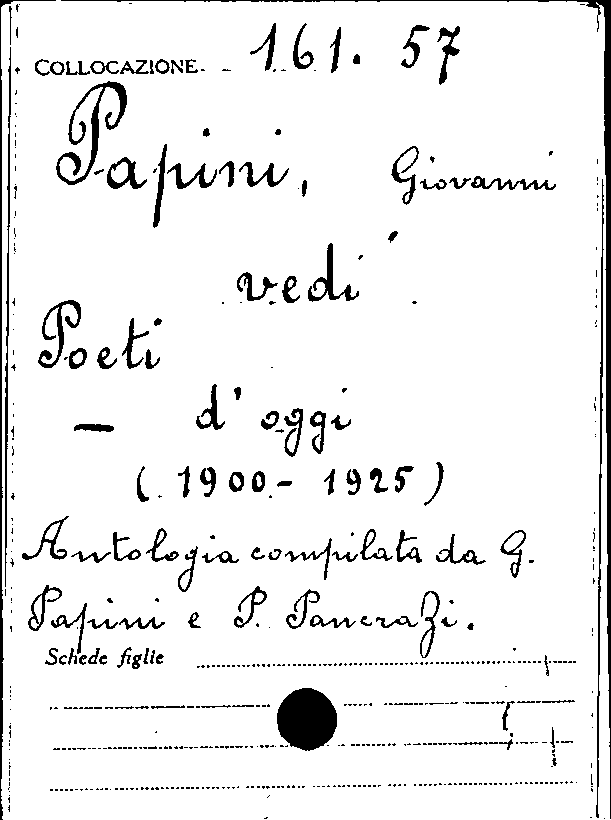 COLLOCAZIONE 161. 57
Papini, Giovanni
vedi
Poeti
— d'oggi
(1900 - 1925)
Antologia compilata da G.
Papini e P. Pancrazi.
Schede figlie